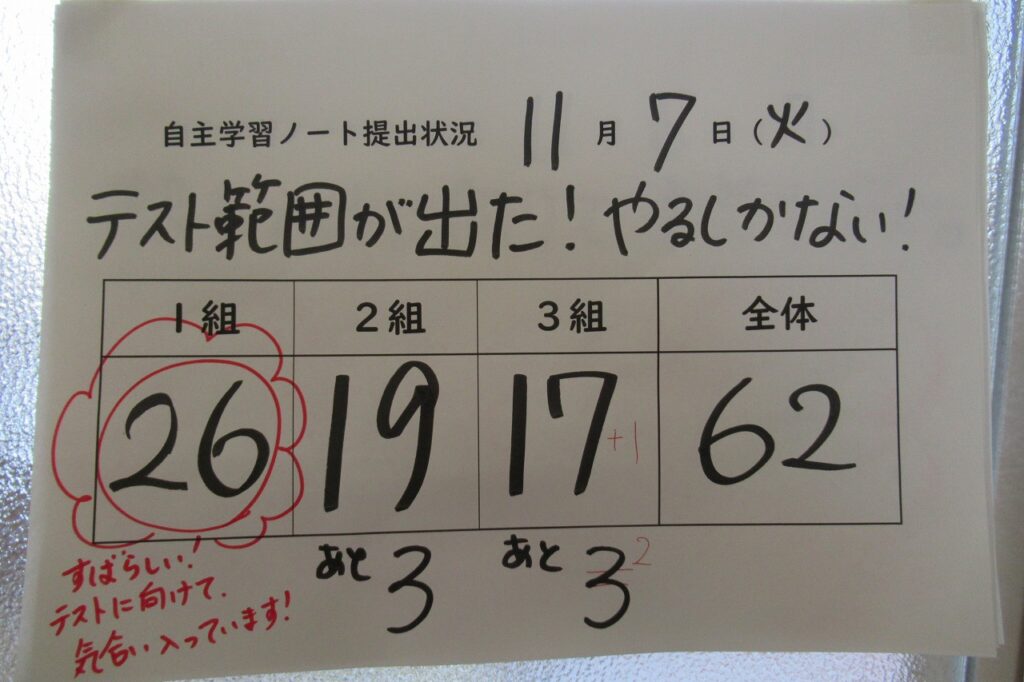 自主学習ノート提出状況 11月7日(火)
テスト範囲が出た!やるしかない!
1組 2組 3組 全体
26 19 17 +1 62
あと3 あと3 2
すばらしい!
テストに向けて、
気合い入っています!